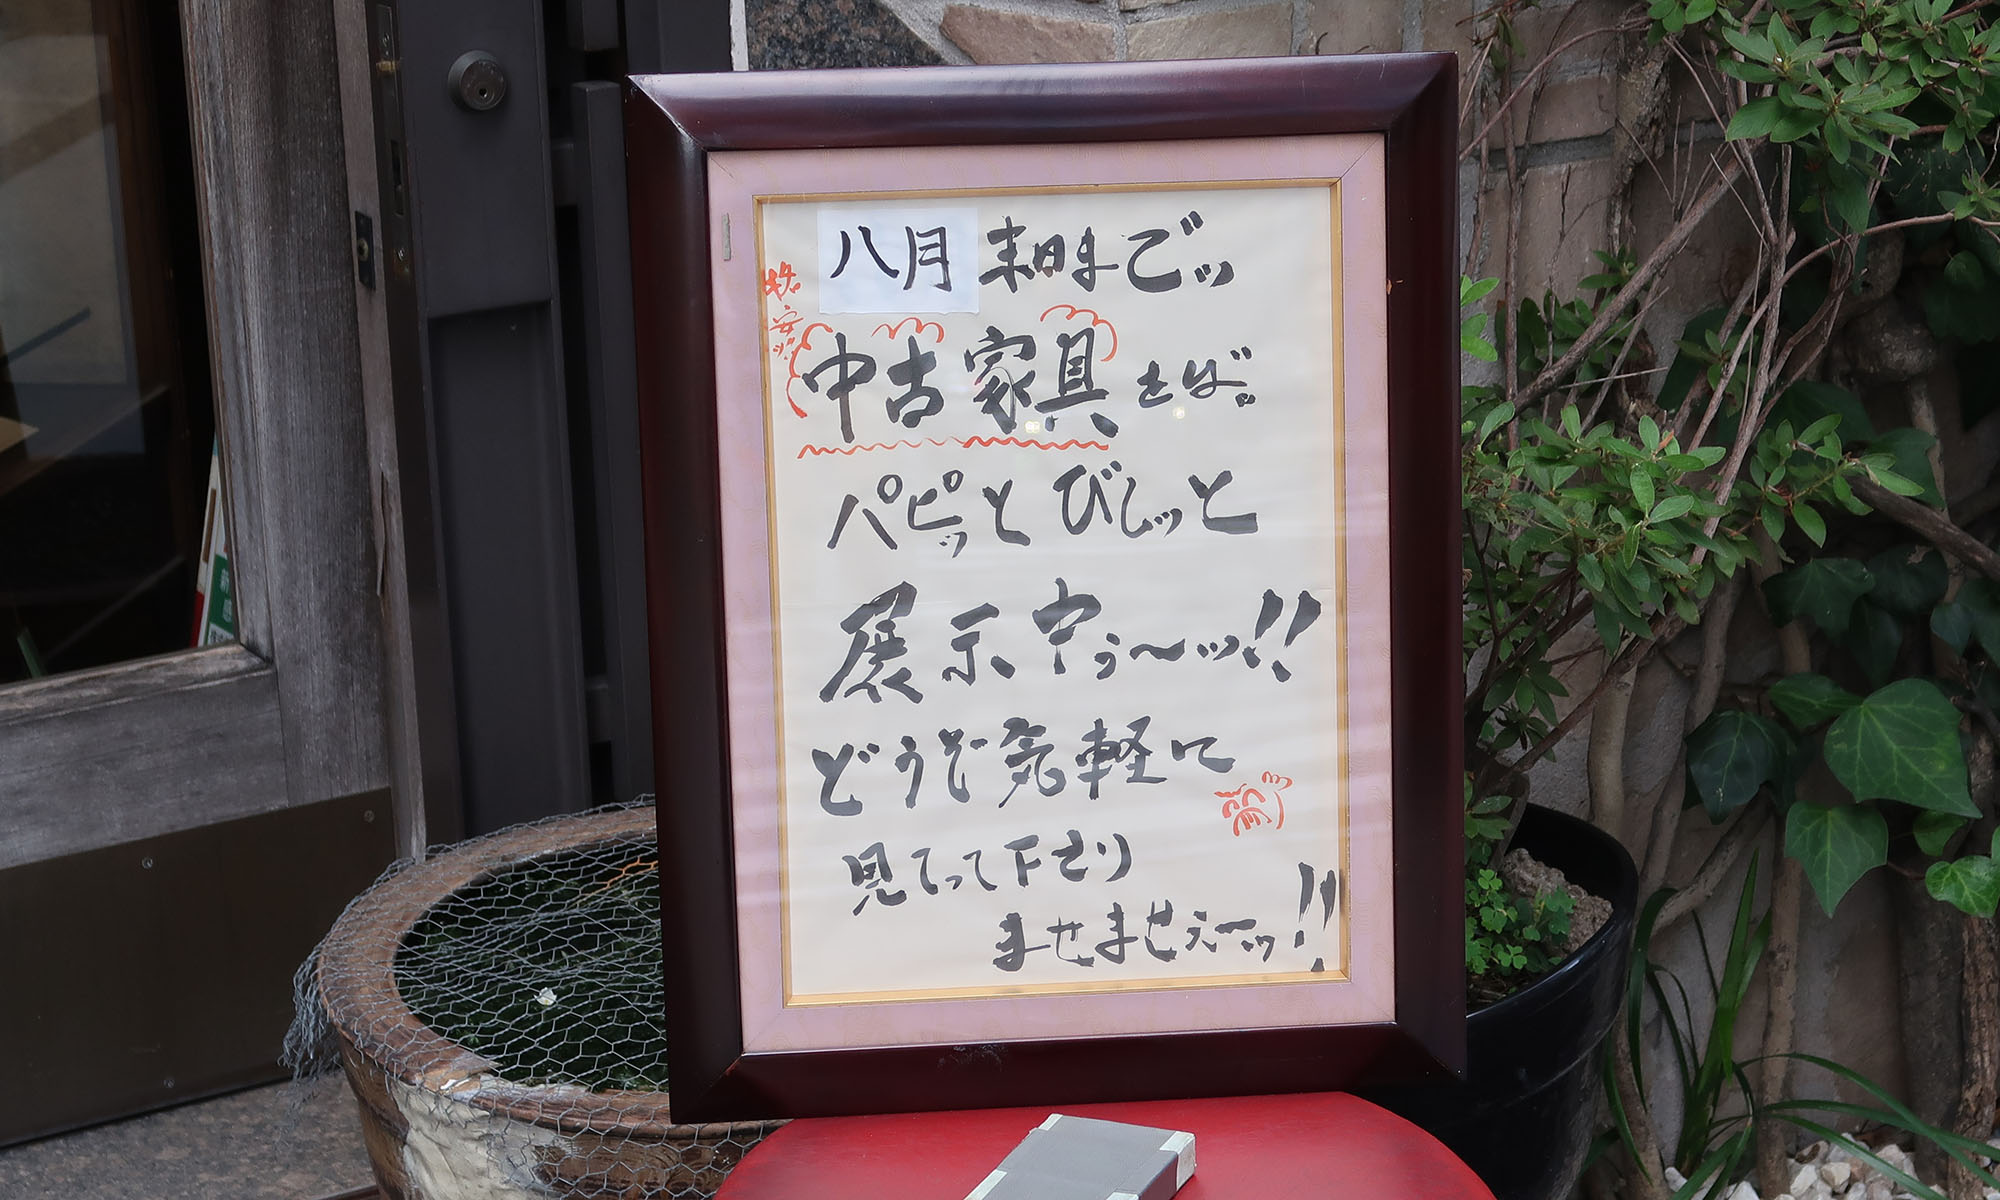 八月末日までッ
格安ッ
中古家具をば。
パピッとびしッと
展示中ぅ〜ッ!!
どうぞ気軽に
見てって下さり
ませませぇーッ!!